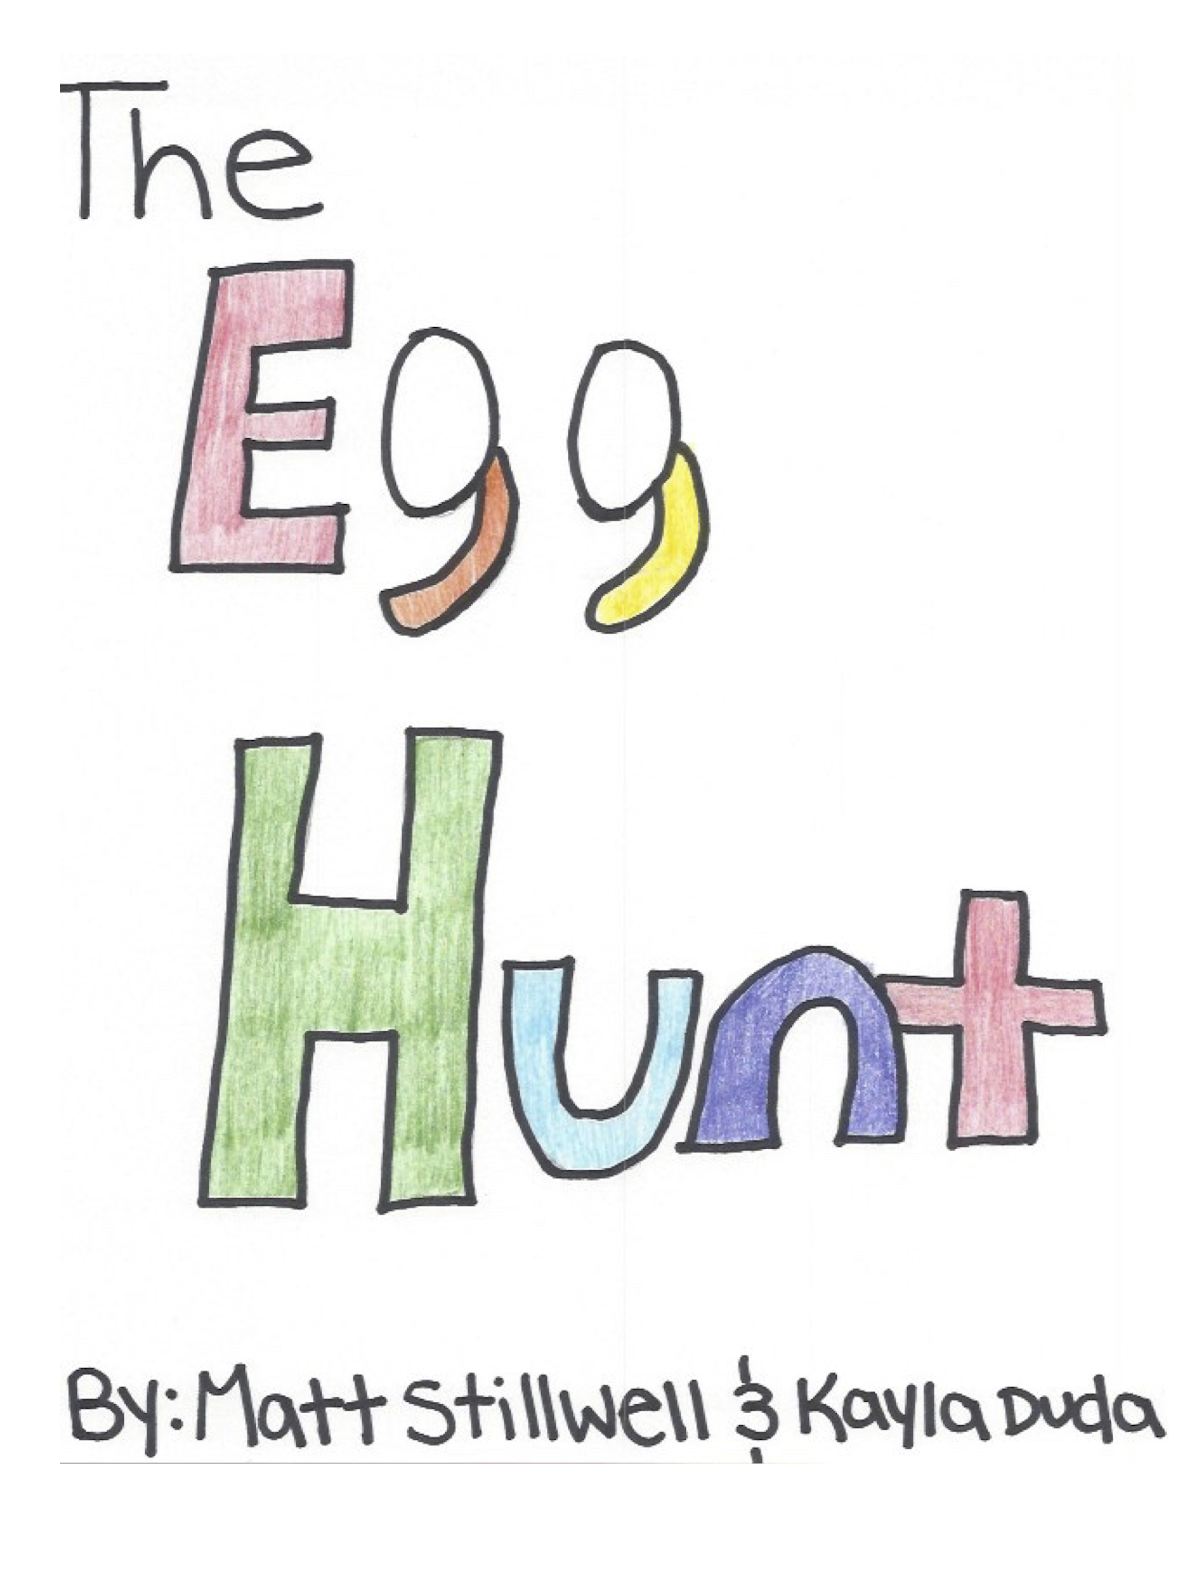 The
Egg
Hunt
By: Matt Stillwell & Kayla Duda